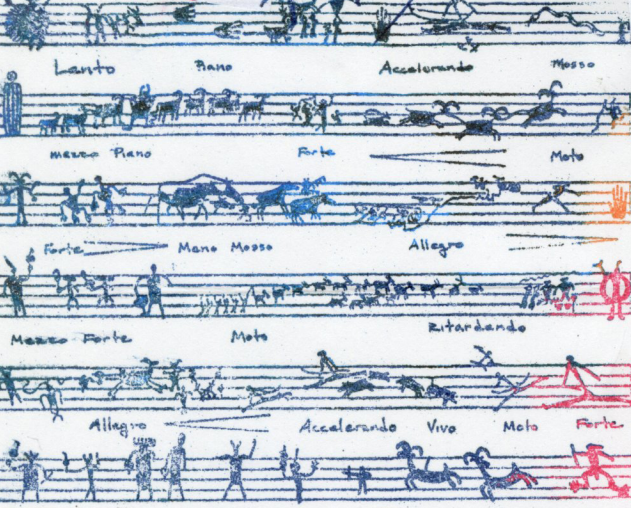 Lento Piano Accelerando Mosso
Mezzo Piano Forte Moto
Forte Meno Mosso Allegro
Mezzo Forte Moto Ritardando
Allegro Accelerando Vivo Moto Forte